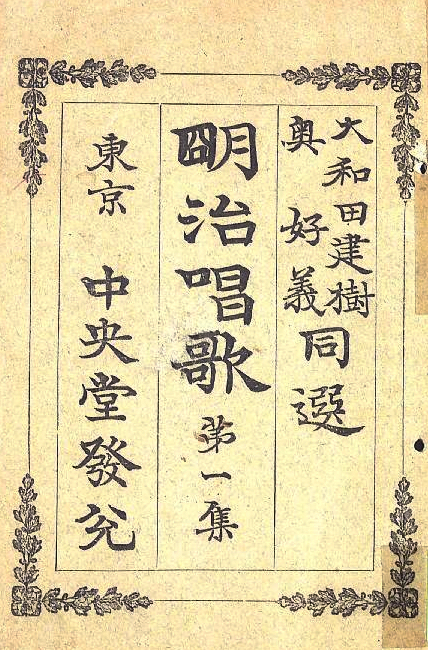 大和田建樹
奥好義
同選
明治唱歌 第一集
東京 中央堂發兌